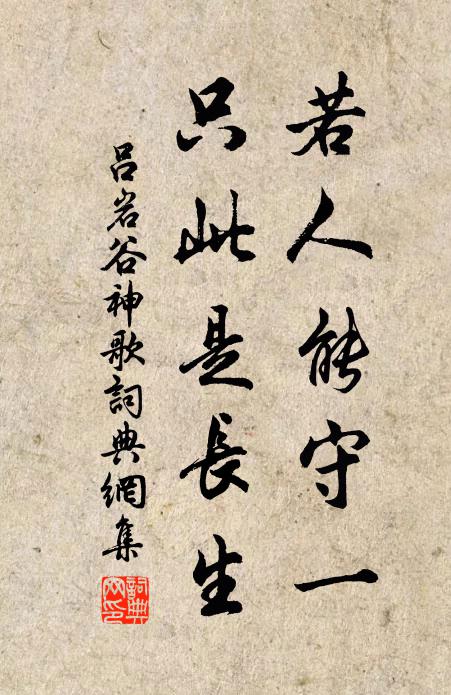 若人能守一
只此是長生
呂岩谷神歌詞典網集
詞典
網印